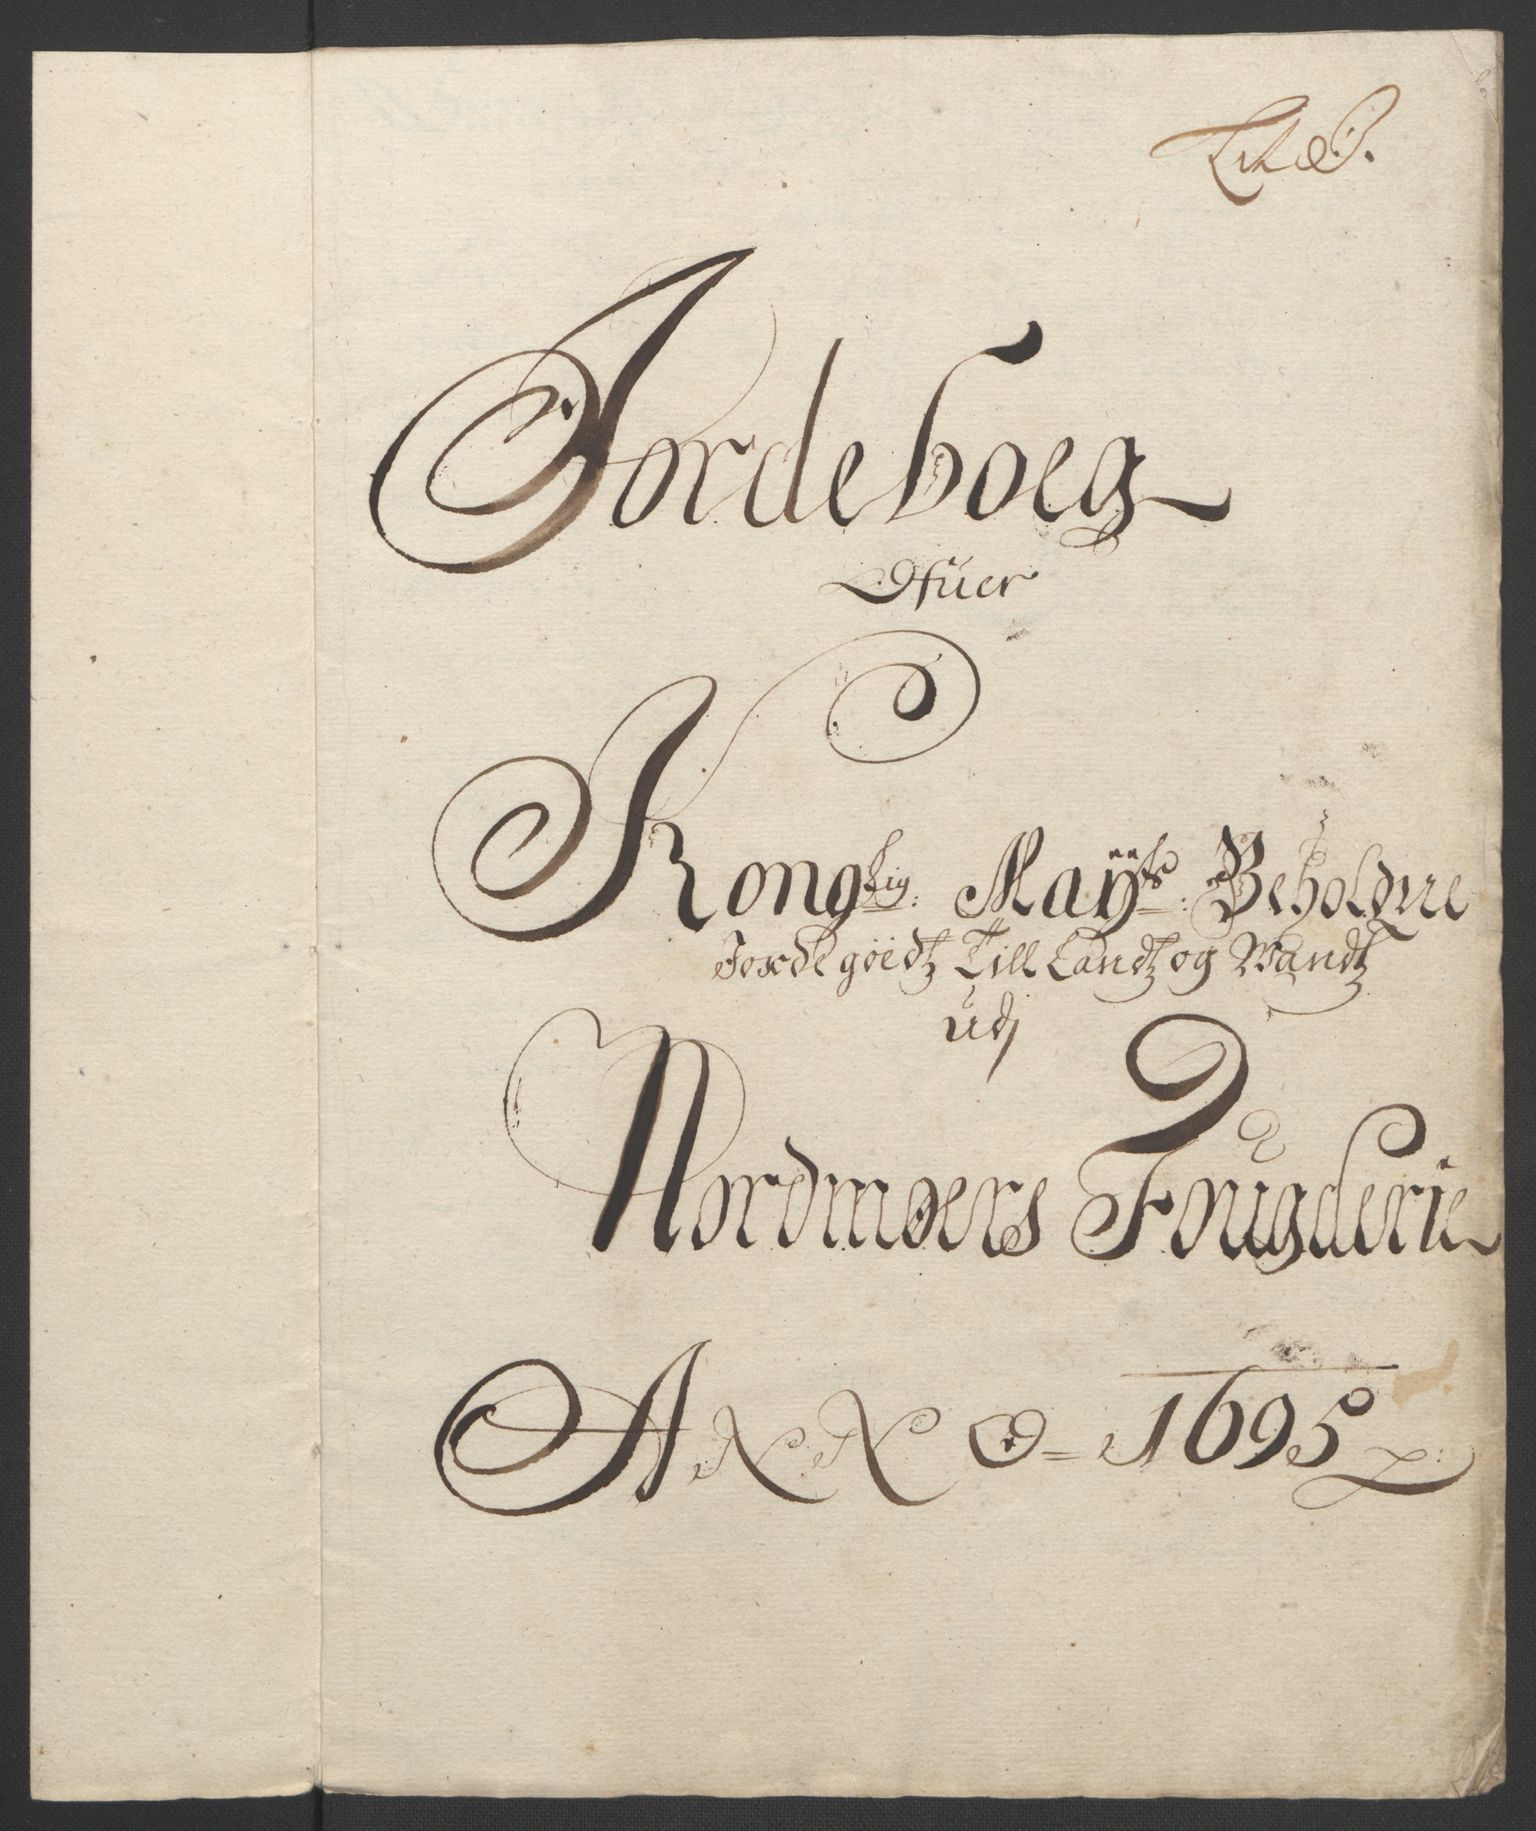 Lit: B.
Jordeboeg
Ofüer
Konglig: Maÿts: Beholdne
Jorde göedtz Till Landtz og Wandtz
udj
Nordmøers Fougderie
ANNO = 1695